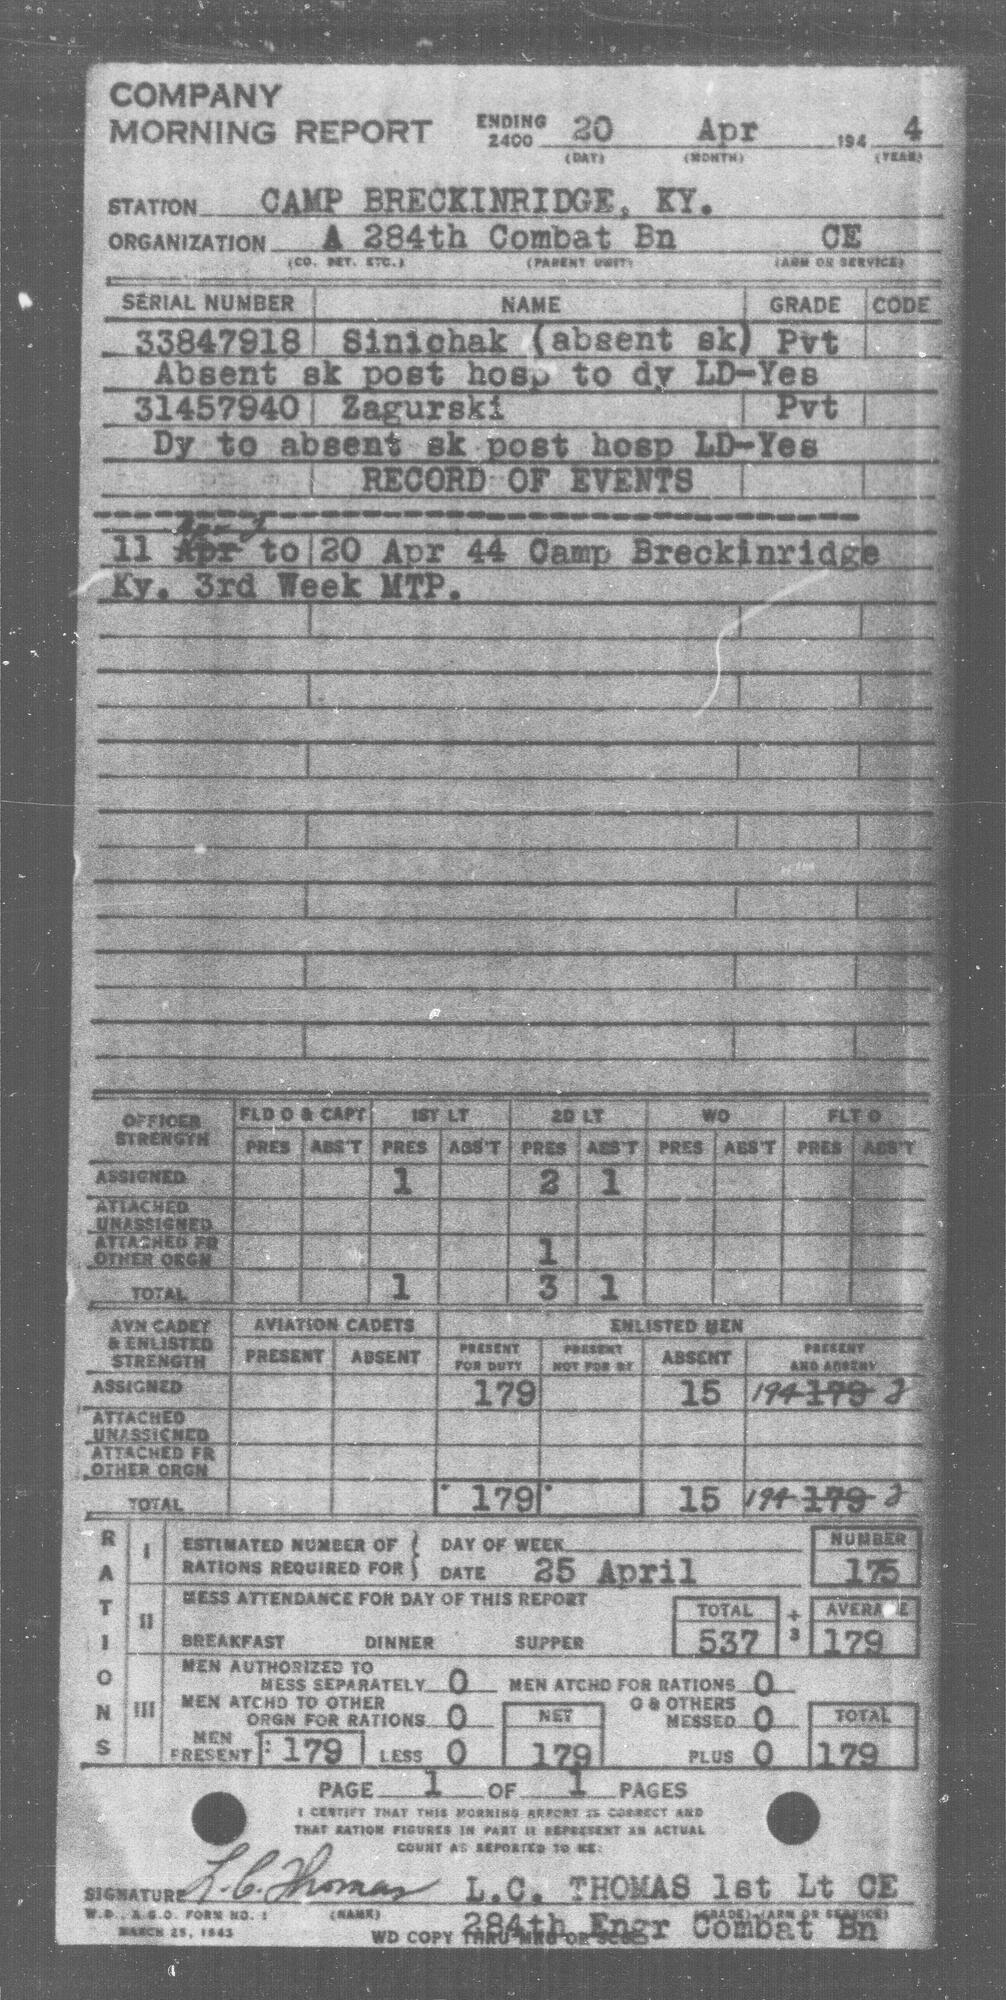 COMPANY
MORNING REPORT ENDING 2400 20 Apr 194 4
(DAY) (MONTH) (YEAR)
STATION CAMP BRECKINRIDGE, KY.
ORGANIZATION A 284th Combat Bn CE
(CO. DET. ETC.) (PARENT UNIT) (ARM OR SERVICE)
SERIAL NUMBER NAME GRADE CODE
33847918 Sinichak (absent sk) Pvt
Absent sk post hosp to dy LD-Yes
31457940 Zagurski Pvt
Dy to absent sk post hosp LD-Yes
RECORD OF EVENTS
11 Apr to 20 Apr 44 Camp Breckinridge
Ky. 3rd Week MTP.
OFFICER STRENGTH FLD O & CAPT 1ST LT 2D LT WO FLT O
PRES ABS'T PRES ABS'T PRES ABS'T PRES ABS'T PRES ABS'T
ASSIGNED 1 2 1
ATTACHED UNASSIGNED
ATTACHED FR OTHER ORGN 1
TOTAL 1 3 1
AVN CADET & ENLISTED STRENGTH AVIATION CADETS ENLISTED MEN
PRESENT ABSENT PRESENT FOR DUTY PRESENT NOT FOR DY ABSENT PRESENT AND ABSENT
ASSIGNED 179 15 194 179
ATTACHED UNASSIGNED
ATTACHED FR OTHER ORGN
TOTAL 179 15 194 179
RATIONS
I ESTIMATED NUMBER OF RATIONS REQUIRED FOR DAY OF WEEK NUMBER
DATE 25 April 175
II MESS ATTENDANCE FOR DAY OF THIS REPORT TOTAL ÷ 3 AVERAGE
BREAKFAST DINNER SUPPER 537 179
III MEN AUTHORIZED TO MESS SEPARATELY 0 MEN ATCHD FOR RATIONS 0
MEN ATCHD TO OTHER ORGN FOR RATIONS 0 NET O & OTHERS MESSED 0 TOTAL
MEN PRESENT 179 LESS 0 179 PLUS 0 179
PAGE 1 OF 1 PAGES
I CERTIFY THAT THIS MORNING REPORT IS CORRECT AND
THAT RATION FIGURES IN PART II REPRESENT AN ACTUAL
COUNT AS REPORTED TO ME:
SIGNATURE L.C. Thomas L.C. THOMAS 1st Lt CE
W.D., A.G.O. FORM NO. 1 (NAME) (GRADE) (ARM OR SERVICE)
MARCH 25, 1943 WD COPY THRU MRU OR 284th Engr Combat Bn